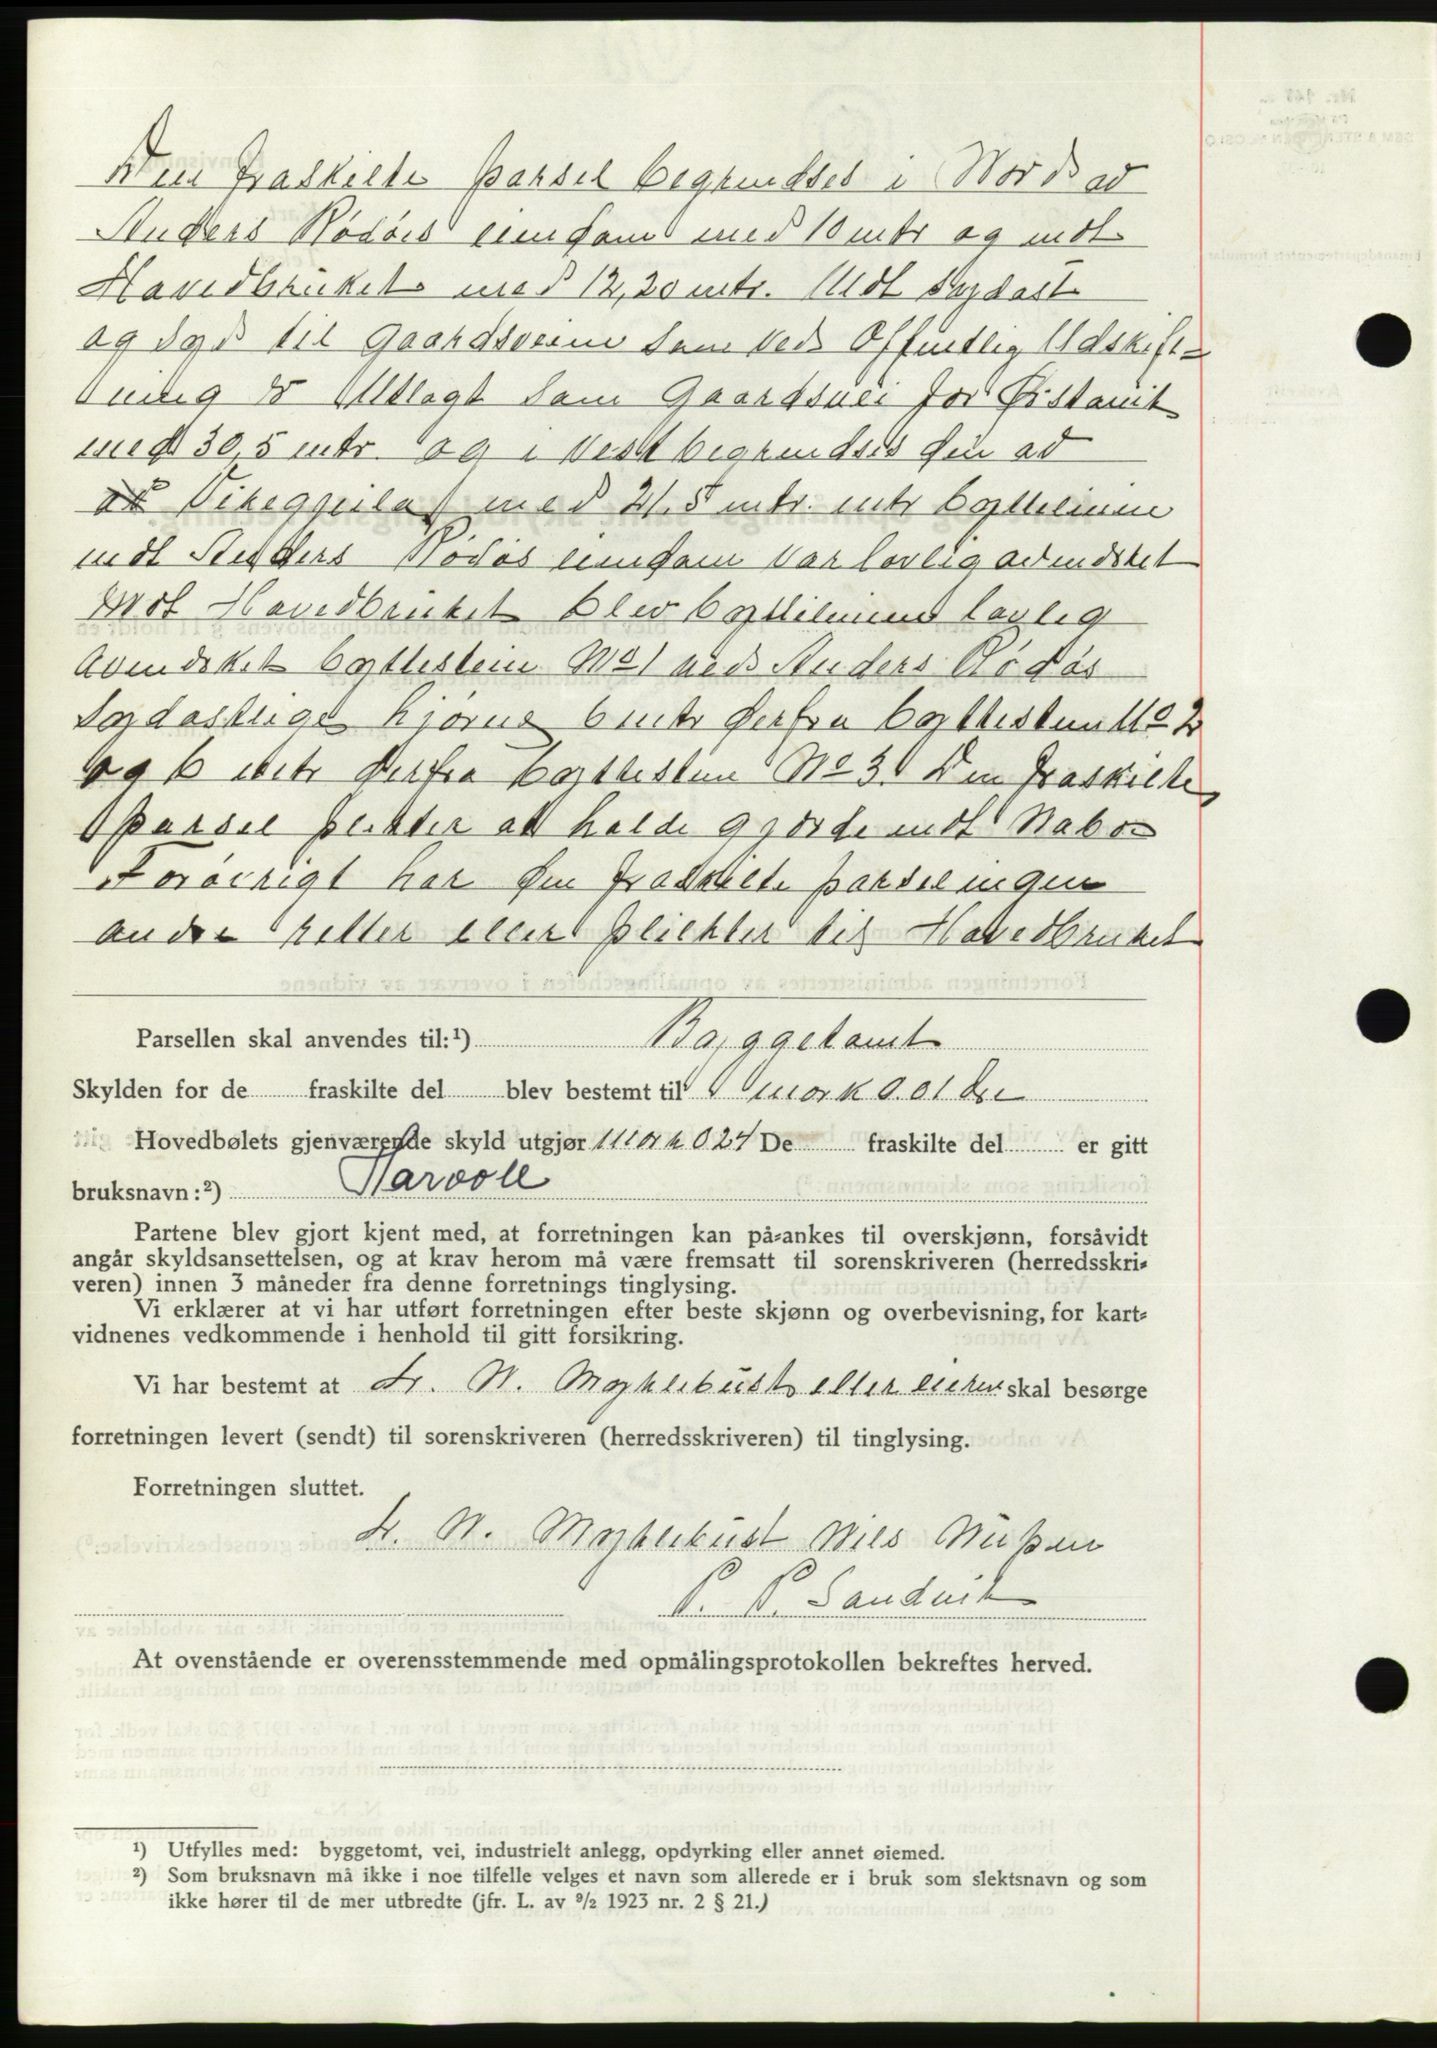 Den fraskilte parsel begrendses i Nord av
Anders Rødøis eiendom med 10 mtr og mdt
Havedbruket med 12,20 mtr. Mdt Sydøst
og Syd til Gaardsveien som ved Offentlig Udskift-
ning er Utlagt som Gaardsvei for Ørstavik
med 30,5 mtr. og i Vest begrendses den ad
med 21.5 mtr. mtr byttelinien
mdt Anders Rødøs eiendom var lovlig avmerket
Mot Havedbruket blev byttelinien lovlig
avmerket byttestein No 1 ved Anders Rødøs
Sydøstlige hjørne 6 mtr derfra byttestein No 2
og 6 mtr derfra byttestein No 3. Den fraskilte
parsel plikter at holde gjærde mdt Nabo-
Forøvrigt har den fraskilte parsel ingen
andre retter eller plikter til Havedbruket
Parsellen skal anvendes til:¹) Byggetomt
Skylden for de fraskilte del blev bestemt til mark 0.01 øre
Hovedbølets gjenværende skyld utgjør mark 024 De fraskilte del er gitt
bruksnavn:²) Harvoll
Partene blev gjort kjent med, at forretningen kan på-ankes til overskjønn, forsåvidt
angår skyldsansettelsen, og at krav herom må være fremsatt til sorenskriveren (herredsskri-
veren) innen 3 måneder fra denne forretnings tinglysing.
Vi erklærer at vi har utført forretningen efter beste skjønn og overbevisning, for kart-
vidnenes vedkommende i henhold til gitt forsikring.
Vi har bestemt at L. N. Myklebust eller eieren skal besørge
forretningen levert (sendt) til sorenskriveren (herredsskriveren) til tinglysing.
Forretningen sluttet.
L. N. Myklebust Nils
P. P. Sandvik
At ovenstående er overensstemmende med opmålingsprotokollen bekreftes herved.
¹) Utfylles med: byggetomt, vei, industrielt anlegg, opdyrking eller annet øiemed.
²) Som bruksnavn må ikke i noe tilfelle velges et navn som allerede er i bruk som slektsnavn og som
ikke hører til de mer utbredte (jfr. L. av ⁹/₂ 1923 nr. 2 § 21.)